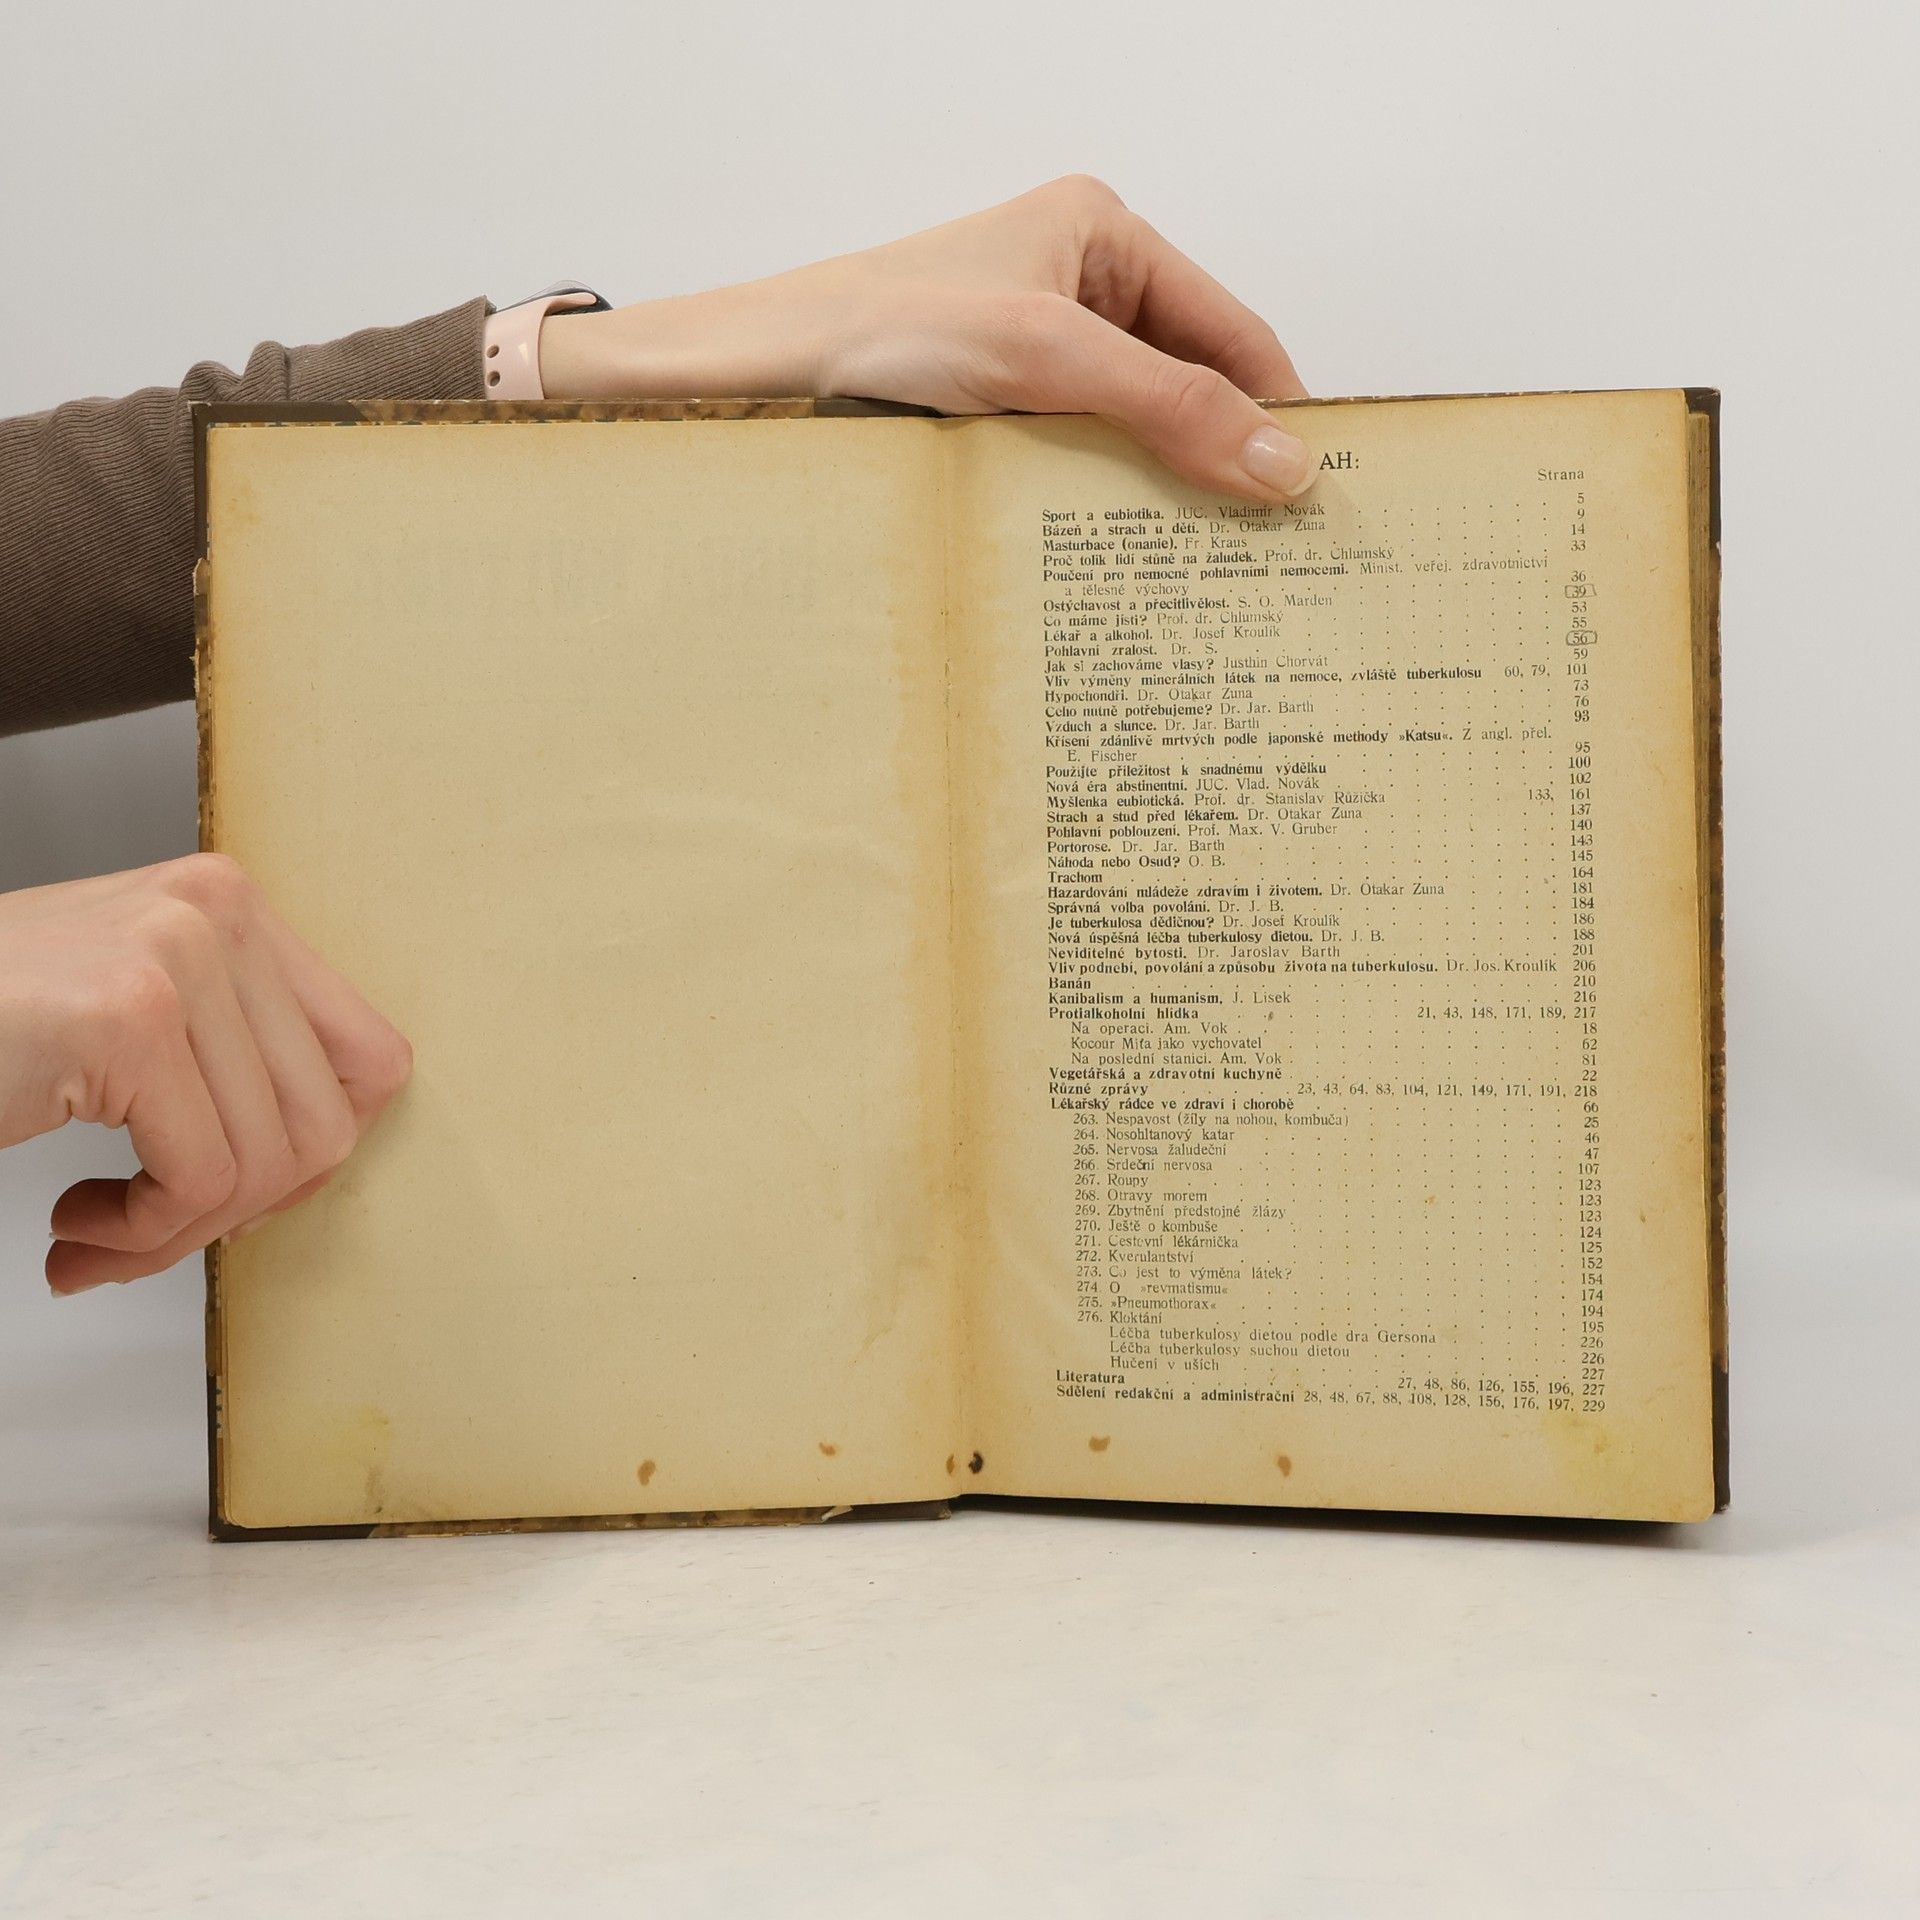 AH:
Strana
Sport a eubiotika. JUC. Vladimír Novák . . . . . . . . 5
Bázeň a strach u dětí. Dr. Otakar Zuna . . . . . . . . 9
Masturbace (onanie). Fr. Kraus . . . . . . . . 14
Proč tolik lidí stůně na žaludek. Prof. dr. Chlumský . . . . . . 33
Poučení pro nemocné pohlavními nemocemi. Minist. veřej. zdravotnictví
a tělesné výchovy . . . . . . . . 36
Ostýchavost a přecitlivělost. S. O. Marden . . . . . . . . 39
Co máme jísti? Prof. dr. Chlumský . . . . . . . . 53
Lékař a alkohol. Dr. Josef Kroulík . . . . . . . . 55
Pohlavní zralost. Dr. S. . . . . . . . . 56
Jak si zachováme vlasy? Justhin Chorvát . . . . . . . . 59
Vliv výměny minerálních látek na nemoce, zvláště tuberkulosu 60, 79, 101
Hypochondři. Dr. Otakar Zuna . . . . . . . . 73
Čeho nutně potřebujeme? Dr. Jar. Barth . . . . . . . . 76
Vzduch a slunce. Dr. Jar. Barth . . . . . . . . 93
Křísení zdánlivě mrtvých podle japonské methody »Katsu«. Z angl. přel.
E. Fischer . . . . . . . . 95
Použijte příležitost k snadnému výdělku . . . . . . . . 100
Nová éra abstinentní. JUC. Vlad. Novák . . . . . . . . 102
Myšlenka eubiotická. Prof. dr. Stanislav Růžička . . . . 133, 161
Strach a stud před lékařem. Dr. Otakar Zuna . . . . . . . . 137
Pohlavní poblouzení. Prof. Max. V. Gruber . . . . . . . . 140
Portorose. Dr. Jar. Barth . . . . . . . . 143
Náhoda nebo Osud? O. B. . . . . . . . . 145
Trachom . . . . . . . . 164
Hazardování mládeže zdravím i životem. Dr. Otakar Zuna . . . . 181
Správná volba povolání. Dr. J. B. . . . . . . . . 184
Je tuberkulosa dědičnou? Dr. Josef Kroulík . . . . . . . . 186
Nová úspěšná léčba tuberkulosy dietou. Dr. J. B. . . . . . . 188
Neviditelné bytosti. Dr. Jaroslav Barth . . . . . . . . 201
Vliv podnebí, povolání a způsobu života na tuberkulosu. Dr. Jos. Kroulík 206
Banán . . . . . . . . 210
Kanibalism a humanism, J. Lisek . . . . . . . . 216
Protialkoholní hlídka . . . . . . 21, 43, 148, 171, 189, 217
Na operaci. Am. Vok . . . . . . . . 18
Kocour Míťa jako vychovatel . . . . . . . . 62
Na poslední stanici. Am. Vok . . . . . . . . 81
Vegetářská a zdravotní kuchyně . . . . . . . . 22
Různé zprávy . . . . 23, 43, 64, 83, 104, 121, 149, 171, 191, 218
Lékařský rádce ve zdraví i chorobě . . . . . . . . 66
263. Nespavost (žíly na nohou, kombuča) . . . . . . . . 25
264. Nosohltanový katar . . . . . . . . 46
265. Nervosa žaludeční . . . . . . . . 47
266. Srdeční nervosa . . . . . . . . 107
267. Roupy . . . . . . . . 123
268. Otravy morem . . . . . . . . 123
269. Zbytnění předstojné žlázy . . . . . . . . 123
270. Ještě o kombuše . . . . . . . . 124
271. Cestovní lékárnička . . . . . . . . 125
272. Kverulantství . . . . . . . . 152
273. Co jest to výměna látek? . . . . . . . . 154
274. O »revmatismu« . . . . . . . . 174
275. »Pneumothorax« . . . . . . . . 194
276. Kloktání . . . . . . . . 195
Léčba tuberkulosy dietou podle dra Gersona . . . . 226
Léčba tuberkulosy suchou dietou . . . . . . . . 226
Hučení v uších . . . . . . . . 227
Literatura . . . . . . . . 27, 48, 86, 126, 155, 196, 227
Sdělení redakční a administrační 28, 48, 67, 88, 108, 128, 156, 176, 197, 229